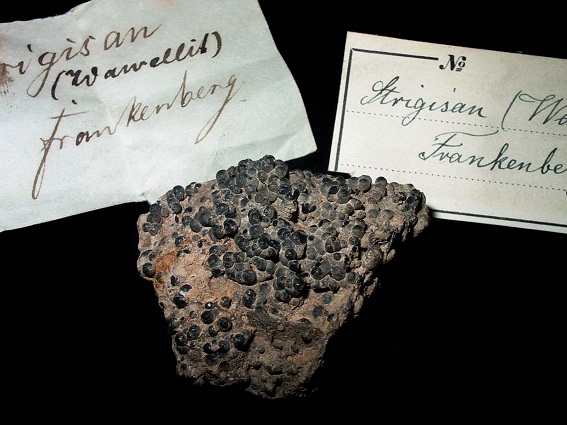 rigisan
(Wawellit)
Frankenberg.
№
Strigisan (Wa
Frankenbe